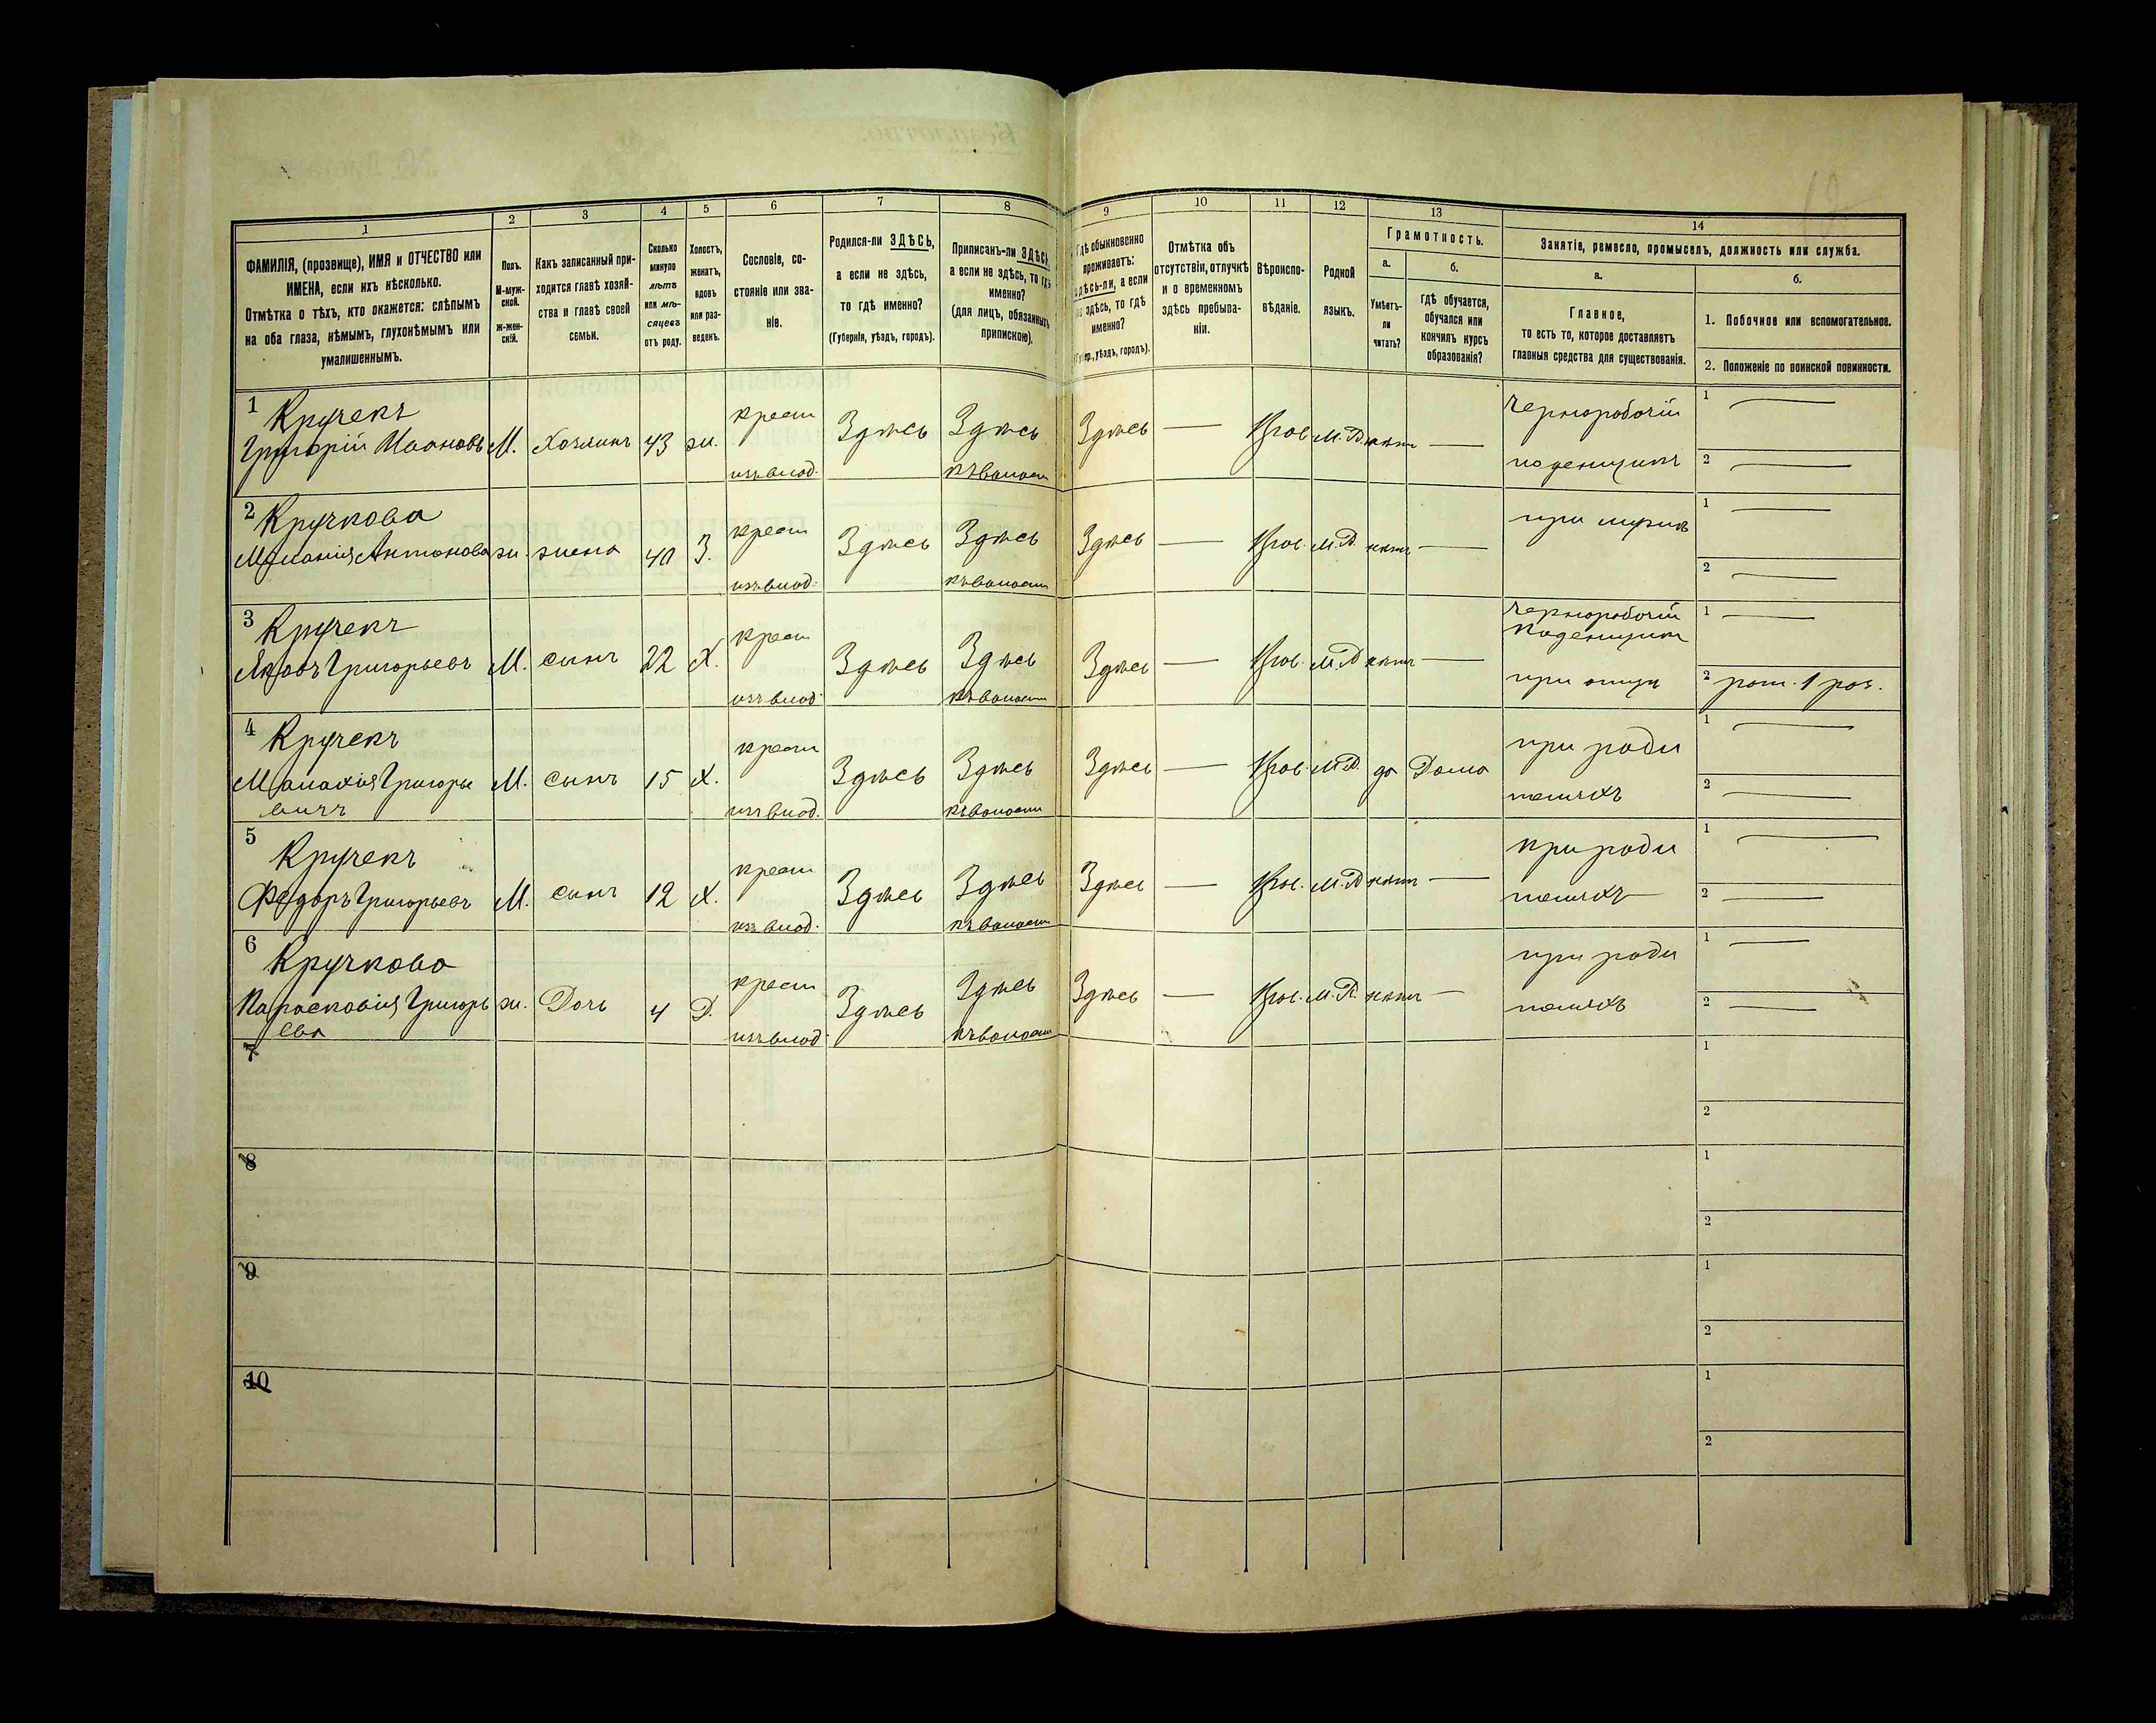 1
2
3
4
5
6
7
8
9
10
11
12
13
14
ФАМИЛІЯ, (прозвище), ИМЯ и ОТЧЕСТВО или
ИМЕНА, если ихъ нѣсколько.
Отмѣтка о тѣхъ, кто окажется: слѣпымъ
на оба глаза, нѣмымъ, глухонѣмымъ или
умалишеннымъ.
Полъ.
М-муж-
ской.
ж-жен-
скій.
Какъ записанный при-
ходится главѣ хозяй-
ства и главѣ своей
семьи.
Сколько
минуло
лѣтъ
или мѣ-
сяцевъ
отъ роду.
Холостъ,
женатъ,
вдовъ
или раз-
веденъ.
Сословіе, со-
стояніе или зва-
ніе.
Родился-ли ЗДѢСЬ,
а если не здѣсь,
то гдѣ именно?
(Губернія, уѣздъ, городъ).
Приписанъ-ли ЗДѢСЬ,
а если не здѣсь, то гдѣ
именно?
(для лицъ, обязанныхъ
припискою).
Гдѣ обыкновенно
проживаетъ:
здѣсь-ли, а если
не здѣсь, то гдѣ
именно?
(Губер., уѣздъ, городъ).
Отмѣтка объ
отсутствіи, отлучкѣ
и о временномъ
здѣсь пребыва-
ніи.
Вѣроиспо-
вѣданіе.
Родной
языкъ.
Грамотность.
а.
Умѣетъ-
ли
читать?
б.
гдѣ обучается,
обучался или
кончилъ курсъ
образованія?
Занятіе, ремесло, промыселъ, должность или служба.
а.
Главное,
то есть то, которое доставляетъ
главныя средства для существованія.
б.
1. Побочное или вспомогательное.
2. Положеніе по воинской повинности.
1 Кручекъ
Григорій Ивановъ М. Хозяинъ 43 ж. крест Здѣсь Здѣсь Здѣсь — Прав. М.Р. нѣтъ — чернорабочій 1 —
изъ влад. къ волости поденщикъ 2 —
2 Кручкова
Маланія Антонова ж. жена 40 З. крест Здѣсь Здѣсь Здѣсь — Прав. М.Р. нѣтъ — при мужѣ 1 —
изъ влад. къ волости 2 —
3 Кручекъ
Яковъ Григорьевъ М. сынъ 22 Х. крест Здѣсь Здѣсь Здѣсь — Прав. М.Р. нѣтъ — чернорабочій 1 —
поденщикъ
изъ влад. къ волости при отцѣ 2 рат. 1 раз.
4 Кручекъ
Малахія Григорье М. сынъ 15 Х. крест Здѣсь Здѣсь Здѣсь — Прав. М.Р. да Дома при роди 1 —
вичъ изъ влад. къ волости теляхъ 2 —
5 Кручекъ
Федоръ Григорьевъ М. сынъ 12 Х. крест Здѣсь Здѣсь Здѣсь — Прав. М.Р. нѣтъ — при роди 1 —
изъ влад. къ волости теляхъ 2 —
6 Кручкова
Парасковія Григорь ж. Дочь 4 Д. крест Здѣсь Здѣсь Здѣсь — Прав. М.Р. нѣтъ — при роди 1 —
ева изъ влад. къ волости теляхъ 2 —
7 1
2
8 1
2
9 1
2
10 1
2